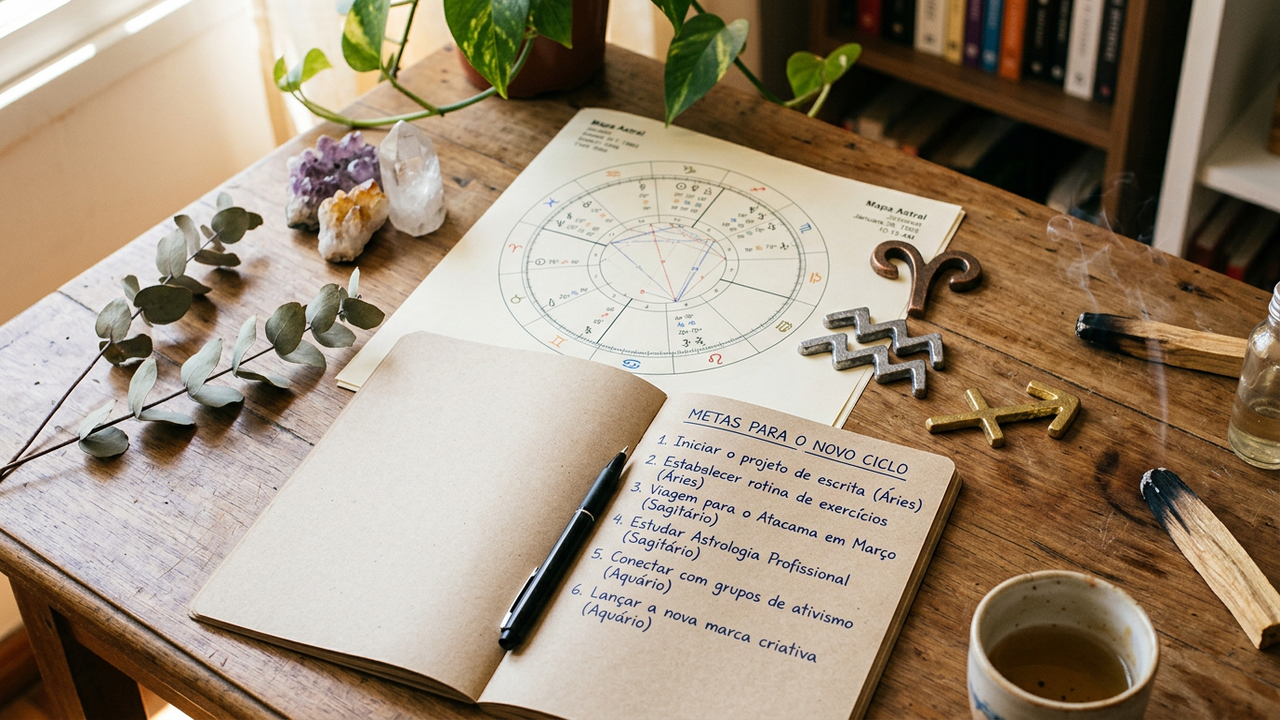 Mapa Astral
Mapa Astral
METAS PARA O NOVO CICLO
1. Iniciar o projeto de escrita (Áries)
2. Establecer rotina de exercícios
(Áries)
3. Viagem para o Atacama em Março
(Sagitário)
4. Estudar Astrologia Profissional
(Sagitário)
5. Conectar com grupos de ativismo
(Aquário)
6. Lançar a nova marca criativa
(Aquário)